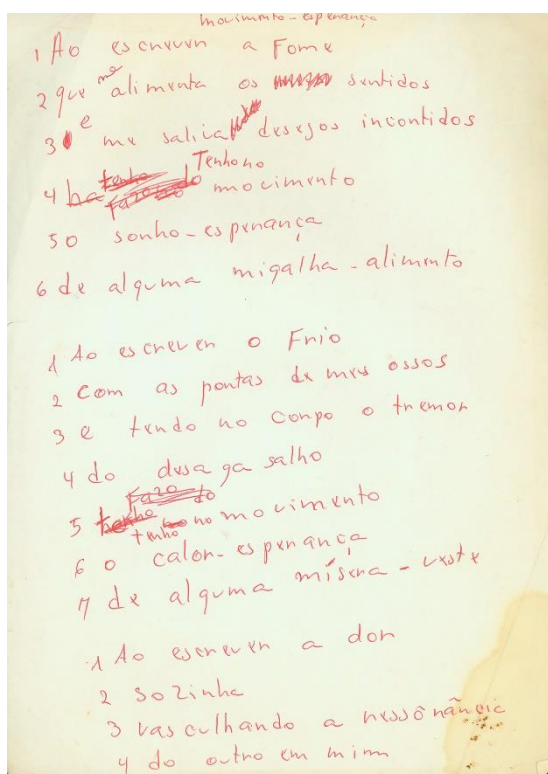 movimento-esperança
1 Ao escrever a Fome
me
2 que alimenta os sentidos
3 e me saliva desejos incontidos
tenho Tenho no
4 ha fazendo movimento
5 o sonho-esperança
6 de alguma migalha-alimento
1 Ao escrever o Frio
2 Com as pontas de meus ossos
3 e tendo no corpo o tremor
4 do desagasalho
5 tenho no movimento
6 o calor-esperança
7 de alguma mísera-veste
1 Ao escrever a dor
2 sozinha
3 vasculhando a ressonância
4 do outro em mim